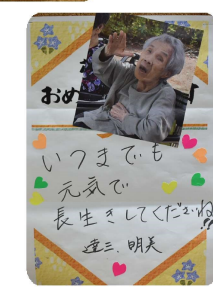 おめ
いつまでも
元気で
長生きしてくださいね!!
達三、明美